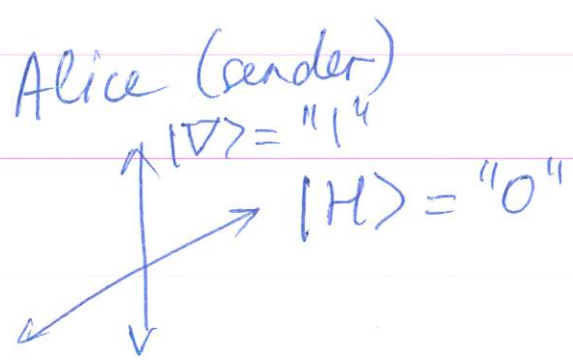 Alice (sender)
|V> = "1"
|H> = "0"